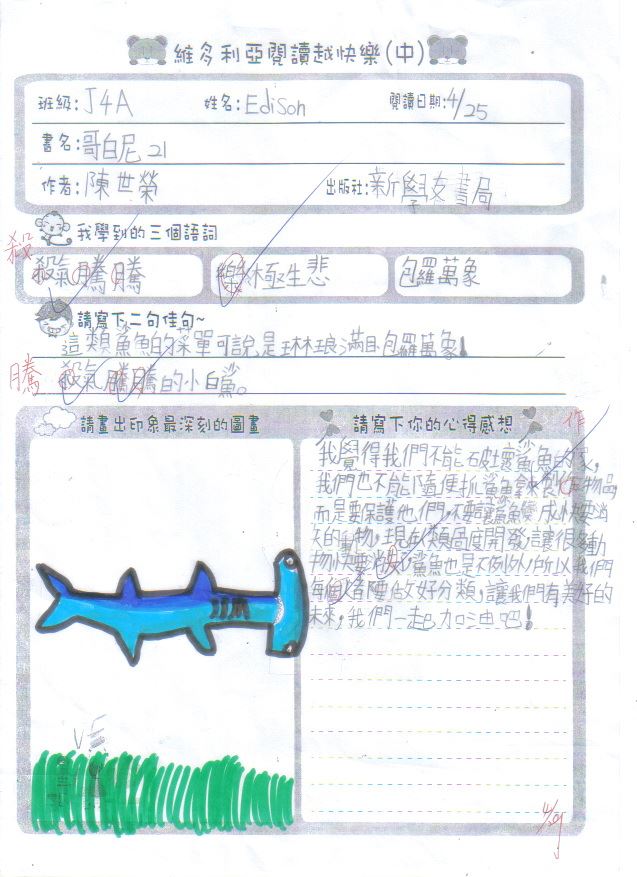 維多利亞閱讀越快樂(中)
班級:J4A 姓名:Edison 閱讀日期:4/25
書名:哥白尼21
作者:陳世榮 出版社:新學友書局
我學到的三個語詞
殺
殺氣騰騰 樂極生悲 包羅萬象
請寫下二句佳句~
這類鯊魚的菜單可說是琳琅滿目包羅萬象!
騰 殺氣騰騰的小白鯊。
請畫出印象最深刻的圖畫 請寫下你的心得感想
作
我覺得我們不能破壞鯊魚的家,
我們也不能隨便抓鯊魚拿來製作物品,
而是要保護他們,不要讓鯊魚變成快要消
失的動物,現在人類過度開發,讓很多動
物快要消失,鯊魚也是不例外,所以我們
每個人都要做好分類,讓我們有美好的
未來,我們一起加油吧!